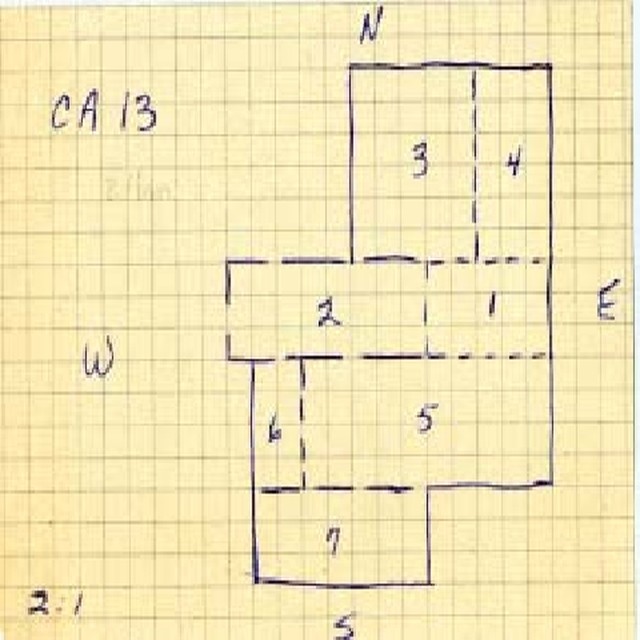 N
CA 13
3
4
2
1
E
W
6
5
7
2:1
S